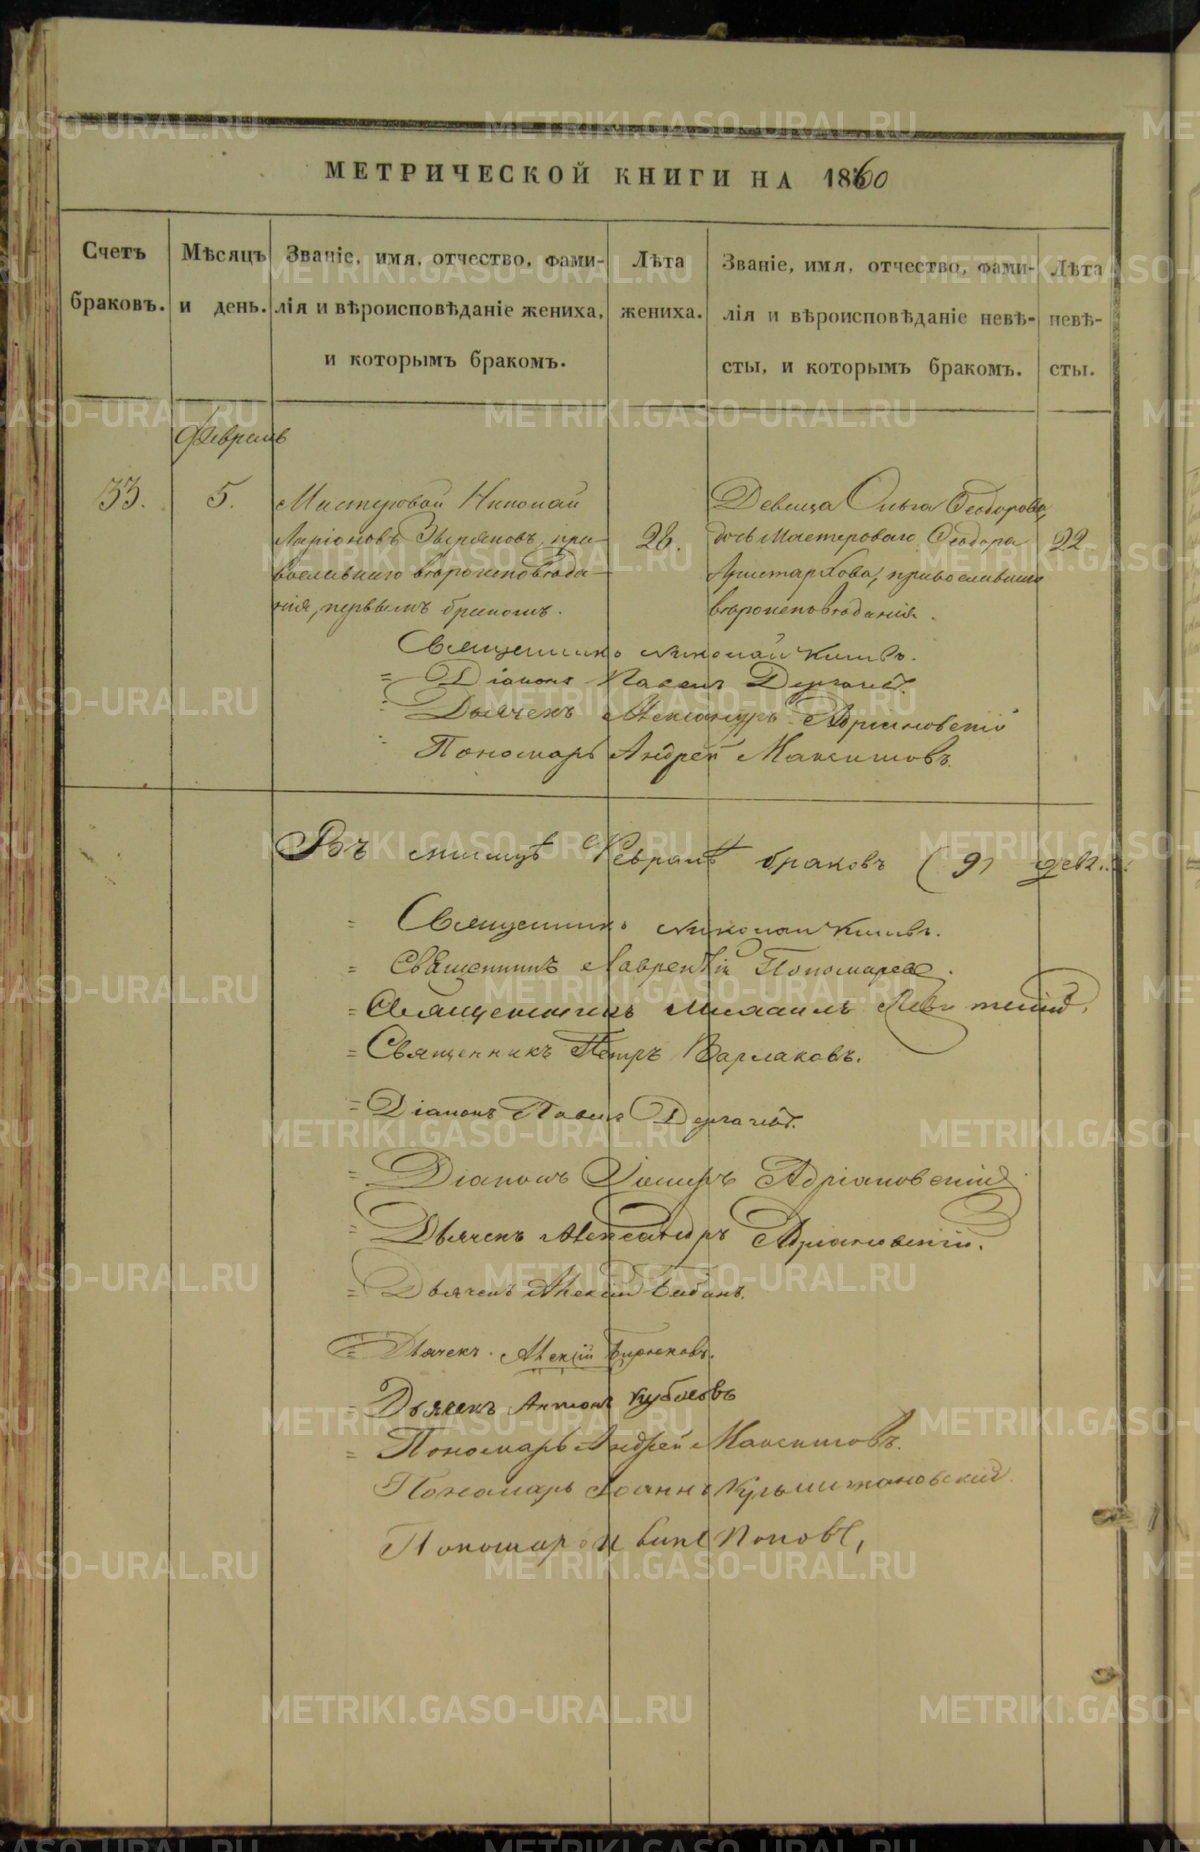 МЕТРИЧЕСКОЙ КНИГИ НА 1860
Счетъ браковъ.
Мѣсяцъ и день.
Званіе, имя, отчество, фами-
лія и вѣроисповѣданіе жениха,
и которымъ бракомъ.
Лѣта жениха.
Званіе, имя, отчество, фами-
лія и вѣроисповѣданіе невѣ-
сты, и которымъ бракомъ.
Лѣта невѣ-
сты.
Февраль
33.
5.
Мастеровой Николай
Ларіоновъ Звѣряковъ, пра-
вославнаго вѣроисповѣда-
нія, первымъ бракомъ.
26.
Девица Ольга Ѳеодорова,
дочь Мастероваго Ѳеодора
Аристархова, православнаго
вѣроисповѣданія.
22
Священникъ Николай
Діаконъ Павелъ Дергачевъ.
Дьячекъ Александръ Адріановскій
Пономарь Андрей Максимовъ.
Въ мѣсяцѣ Февралѣ браковъ (9)
Священникъ Николай
Священникъ Лаврентій Пономаревъ.
Священникъ Михаилъ
Священникъ Петръ Варлаковъ.
Діаконъ Павелъ Дергачевъ.
Діаконъ Адріановскій
Дьячекъ Александръ Адріановскій.
Дьячекъ Алексій
Дьячекъ Алексій Бирюковъ.
Дьячекъ Антонъ Кубасовъ
Пономарь Андрей Максимовъ.
Пономарь Іоаннъ
Пономарь Поповъ,
METRIKI.GASO-URAL.RU